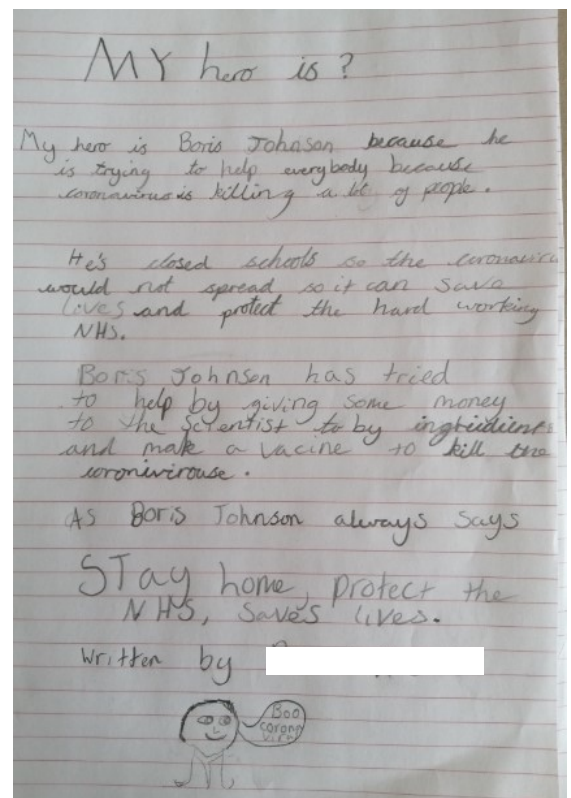 MY hero is?
My hero is Boris Johnson because he
is trying to help everybody because
coronavirus is killing a lot of people.
He's closed schools so the coronaviru
would not spread so it can save
lives and protect the hard working
NHS.
Boris Johnson has tried
to help by giving some money
to the Scientist to by ingreidients
and make a vacine to kill the
coronivirouse.
As Boris Johnson always says
STay home, protect the
NHS, saves lives.
Written by
Boo
corona
virus